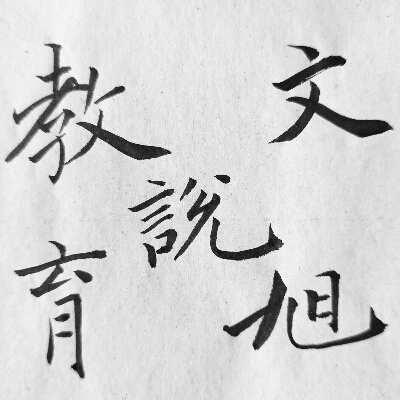 文旭
説
教育